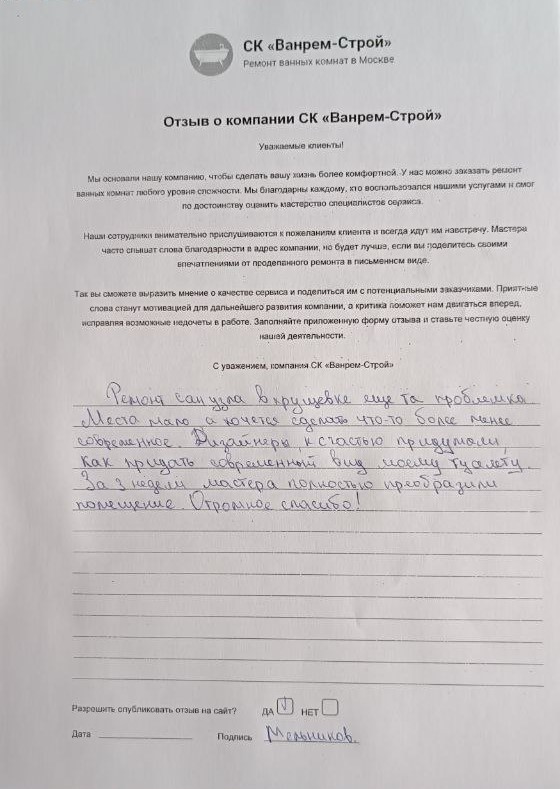 СК «Ванрем-Строй»
Ремонт ванных комнат в Москве
Отзыв о компании СК «Ванрем-Строй»
Уважаемые клиенты!
Мы основали нашу компанию, чтобы сделать вашу жизнь более комфортной. У нас можно заказать ремонт
ванных комнат любого уровня сложности. Мы благодарны каждому, кто воспользовался нашими услугами и смог
по достоинству оценить мастерство специалистов сервиса.
Наши сотрудники внимательно прислушиваются к пожеланиям клиента и всегда идут им навстречу. Мастера
часто слышат слова благодарности в адрес компании, но будет лучше, если вы поделитесь своими
впечатлениями от проделанного ремонта в письменном виде.
Так вы сможете выразить мнение о качестве сервиса и поделиться им с потенциальными заказчиками. Приятные
слова станут мотивацией для дальнейшего развития компании, а критика поможет нам двигаться вперед,
исправляя возможные недочеты в работе. Заполняйте приложенную форму отзыва и ставьте честную оценку
нашей деятельности.
С уважением, компания СК «Ванрем-Строй»
Ремонт санузла в хрущевке еще та проблемка.
Места мало а хочется сделать что-то более менее
современное. Дизайнеры, к счастью придумали,
как придать современный вид моему туалету.
За 3 недели мастера полностью преобразили
помещение. Огромное спасибо!
Разрешить опубликовать отзыв на сайт? ДА НЕТ
Дата Подпись Мельников.